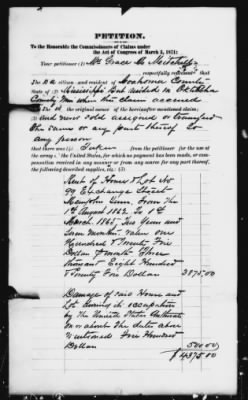 PETITION.
To the Honorable the Commissioners of Claims under the
Act of Congress of March 3, 1871:
Your petitioner (1) Mrs Grace C.
respectfully represent
The is a citizen and resident of Coahoma County
State of (2) Mississippi but resided in
County when this claim accrued
the original owner of the hereinafter mentioned claim;
and never sold assigned or transferred
the same or any part thereof to
any person
that there was (4) Taken from the petitioner for the use of
the army of the United States, for which no payment has been made, or com-
pensation received in any manner or from any source, for any part thereof,
the following described supplies, viz: (5)
Rent of House & Lot No
99 Exchange Street
Memphis Tenn. from the
1st August 1862 to 1st
March 1865, Two Years and
Seven months. Value One
Hundred & Twenty Five
Dollars month Three
thousand Eight Hundred
& Seventy Five Dollars 3875.00
Damage of said House and
Lot during its occupation
by the United States
on or about the date above
mentioned Five Hundred
Dollars 500.00
$4375.00